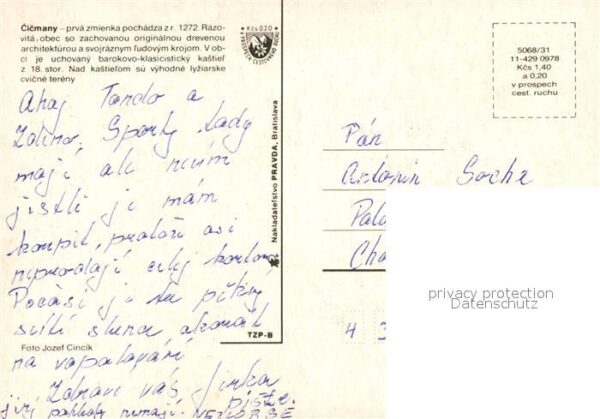 Čičmany – prvá zmienka pochádza z r. 1272. Rázo-
vitá obec so zachovanou originálnou drevenou
architektúrou a svojráznym ľudovým krojom. V ob-
ci je uchovaný barokovo-klasicistický kaštieľ
z 18. stor. Nad kaštieľom sú výhodné lyžiarske
cvičné terény
Kčs 0,20
V PROSPECH CESTOVNÉHO RUCHU
5068/31
11-429 0978
Kčs 1,40
a 0,20
v prospech
cest. ruchu
Nakladateľstvo PRAVDA, Bratislava
TZP-B
Ahoj Tondo a
Zdeno. Sporty tady
mají ale nevím
jestli je mám
koupit, protože asi
neprodají celý karton.
Počasí je tu pěkný
svítí slunce akorát
na vopalování
Foto Jozef Cincík
Zdraví vás Jirka
pište.
Pán
Antonín Socha
Pala
Cha
4 3
privacy protection
Datenschutz